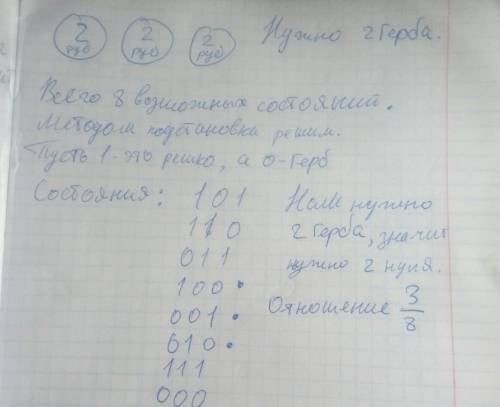 2 руб 2 руб 2 руб Нужно 2 герба.
Всего 8 возможных состояний.
Методом подстановка решим.
Пусть 1-это решко, а 0-герб
Состояния: 101 Нам нужно
110 2 герба, значит
011 нужно 2 нуля.
100• Отношение 3/8
001•
010•
111
000